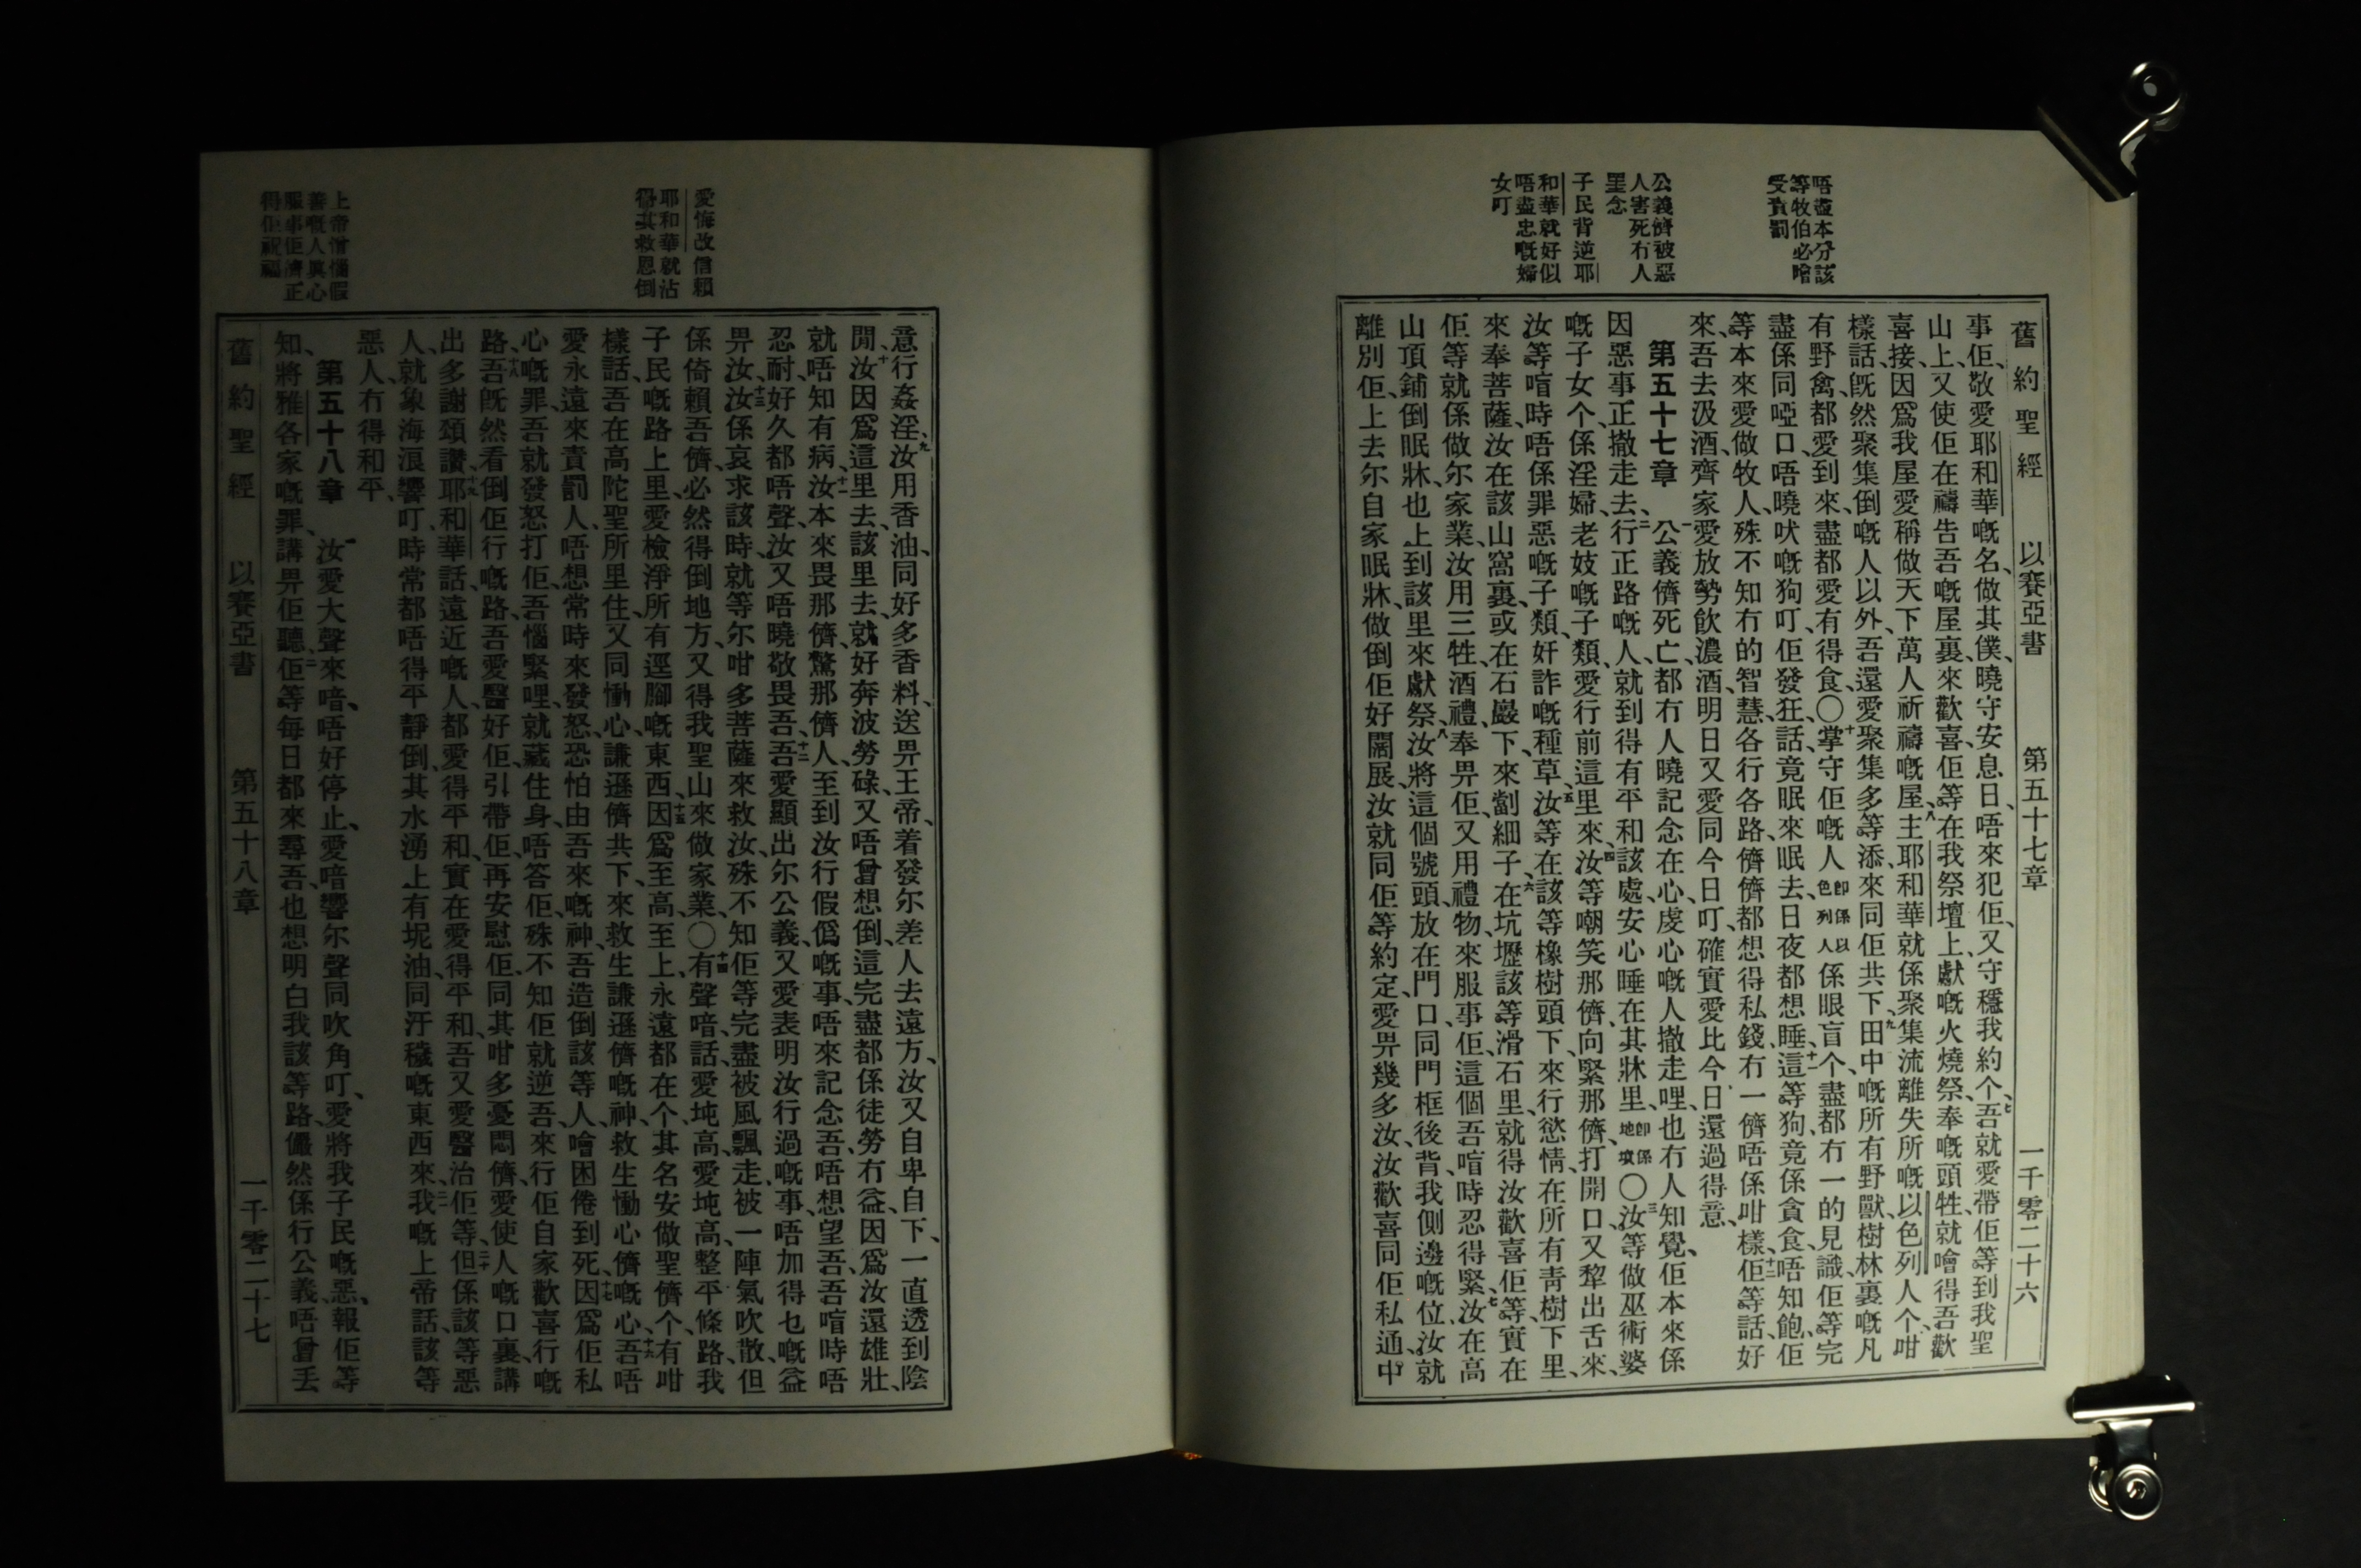 舊約聖經 以賽亞書 第五十七章 一千零二十六
唔盡本分該
等牧伯必噲
受責罰
公義儕被惡
人害死冇人
罣念
子民背逆耶
和華就好似
唔盡忠嘅婦
女叮
事佢、敬愛耶和華嘅名、做其僕、曉守安息日、唔來犯佢、又守穩我約个、七吾就愛帶佢等到我聖
山上、又使佢在禱告吾嘅屋裏、來歡喜、佢等在我祭壇上、獻嘅火燒祭、奉嘅頭牲、就噲得吾歡
喜接、因爲我屋愛稱做天下萬人祈禱嘅屋、八主耶和華就係聚集流離失所嘅以色列人个、咁
樣話、旣然聚集倒嘅人以外、吾還愛聚集多等添、來同佢共下、九田中嘅所有野獸、樹林裏嘅凡
有野禽、都愛到來、盡都愛有得食、〇十掌守佢嘅人卽係以色列人係眼盲个、盡都冇一的見識、佢等完
盡係同啞口、唔曉吠嘅狗叮、佢發狂、話、竟眠來眠去、日夜都想睡、十一這等狗、竟係貪食、唔知飽、佢
等本來愛做牧人、殊不知冇的智慧、各行各路、儕儕都想得私錢、冇一儕唔係咁樣、十二佢等話、好
來、吾去汲酒、齊家愛放勢飲濃酒、明日又愛同今日叮、確實愛比今日還過得意、
第五十七章 一公義儕死亡、都冇人曉記念在心、虔心嘅人撤走哩、也冇人知覺、佢本來係
因惡事正撤走去、二行正路嘅人、就到得有平和該處、安心睡在其牀里、卽係地墳〇三汝等做巫術婆
嘅子女个、係淫婦、老妓嘅子類、愛行前這里來、四汝等嘲笑那儕、向緊那儕、打開口、又犂出舌來、
汝等喑時唔係罪惡嘅子類、奸詐嘅種草、五汝等在該等橡樹頭下、來行慾情、在所有靑樹下里、
來奉菩薩、汝在該山窩裏、或在石巖下、來劏細子、六在坑壢該等滑石里、就得汝歡喜、佢等實在
佢等就係做尔家業、汝用三牲、酒禮、奉畀佢、又用禮物、來服事佢、這個吾喑時忍得緊、七汝在高
山頂鋪倒眠牀、也上到該里來獻祭、八汝將這個號頭、放在門口、同門框後背、我側邊嘅位、汝就
離別佢、上去尔自家眠牀、做倒佢好闊展、汝就同佢等約定、愛畀幾多汝、汝歡喜同佢私通、中
愛悔改信賴
耶和華就沾
得其救恩倒
上帝憎惱假
善嘅人眞心
服事佢濟正
得佢祝福
意行姦淫、九汝用香油、同好多香料、送畀王帝、着發尔差人去遠方、汝又自卑自下、一直透到陰
閒、十汝因爲這里去、該里去、就好奔波勞碌、又唔曾想倒、這完盡都係徒勞冇益、因爲汝還雄壯、
就唔知有病、十一汝本來畏那儕、驚那儕人、至到汝行假僞嘅事、唔來記念吾、唔想望吾、吾喑時唔
忍耐、好久都唔聲、汝又唔曉敬畏吾、十二吾愛顯出尔公義、又愛表明汝行過嘅事、唔加得乜嘅益
畀汝、十三汝係哀求該時、就等尔咁多菩薩來救汝、殊不知佢等完盡被風飄走、被一陣氣吹散、但
係倚賴吾儕、必然得倒地方、又得我聖山來做家業、〇十四有聲喑、話、愛坉高、愛坉高、整平條路、我
子民嘅路上里、愛檢淨所有逕腳嘅東西、十五因爲至高、至上、永遠都在个、其名安做聖儕个、有咁
樣話、吾在高陀聖所里住、又同慟心、謙遜儕共下、來救生謙遜儕嘅神、救生慟心儕嘅心、十六吾唔
愛永遠來責罰人、唔想常時來發怒、恐怕由吾來嘅神、吾造倒該等人、噲困倦到死、十七因爲佢私
心嘅罪、吾就發怒打佢、吾惱緊哩、就藏住身、唔答佢、殊不知佢就逆吾、來行佢自家歡喜行嘅
路、十八吾旣然看倒佢行嘅路、吾愛醫好佢、引帶佢、再安慰佢、同其咁多憂悶儕、愛使人嘅口裏、講
出多謝頌讚、十九耶和華話、遠近嘅人、都愛得平和、實在愛得平和、吾又愛醫治佢等、二十但係該等惡
人、就象海浪響叮、時常都唔得平靜倒、其水湧上有坭油、同汙穢嘅東西來、二一我嘅上帝話、該等
惡人、冇得和平、
第五十八章 一汝愛大聲來喑、唔好停止、愛喑響尔聲、同吹角叮、愛將我子民嘅惡、報佢等
知、將雅各家嘅罪、講畀佢聽、二佢等每日都來尋吾、也想明白我該等路、儼然係行公義、唔曾丟
舊約聖經 以賽亞書 第五十八章 一千零二十七